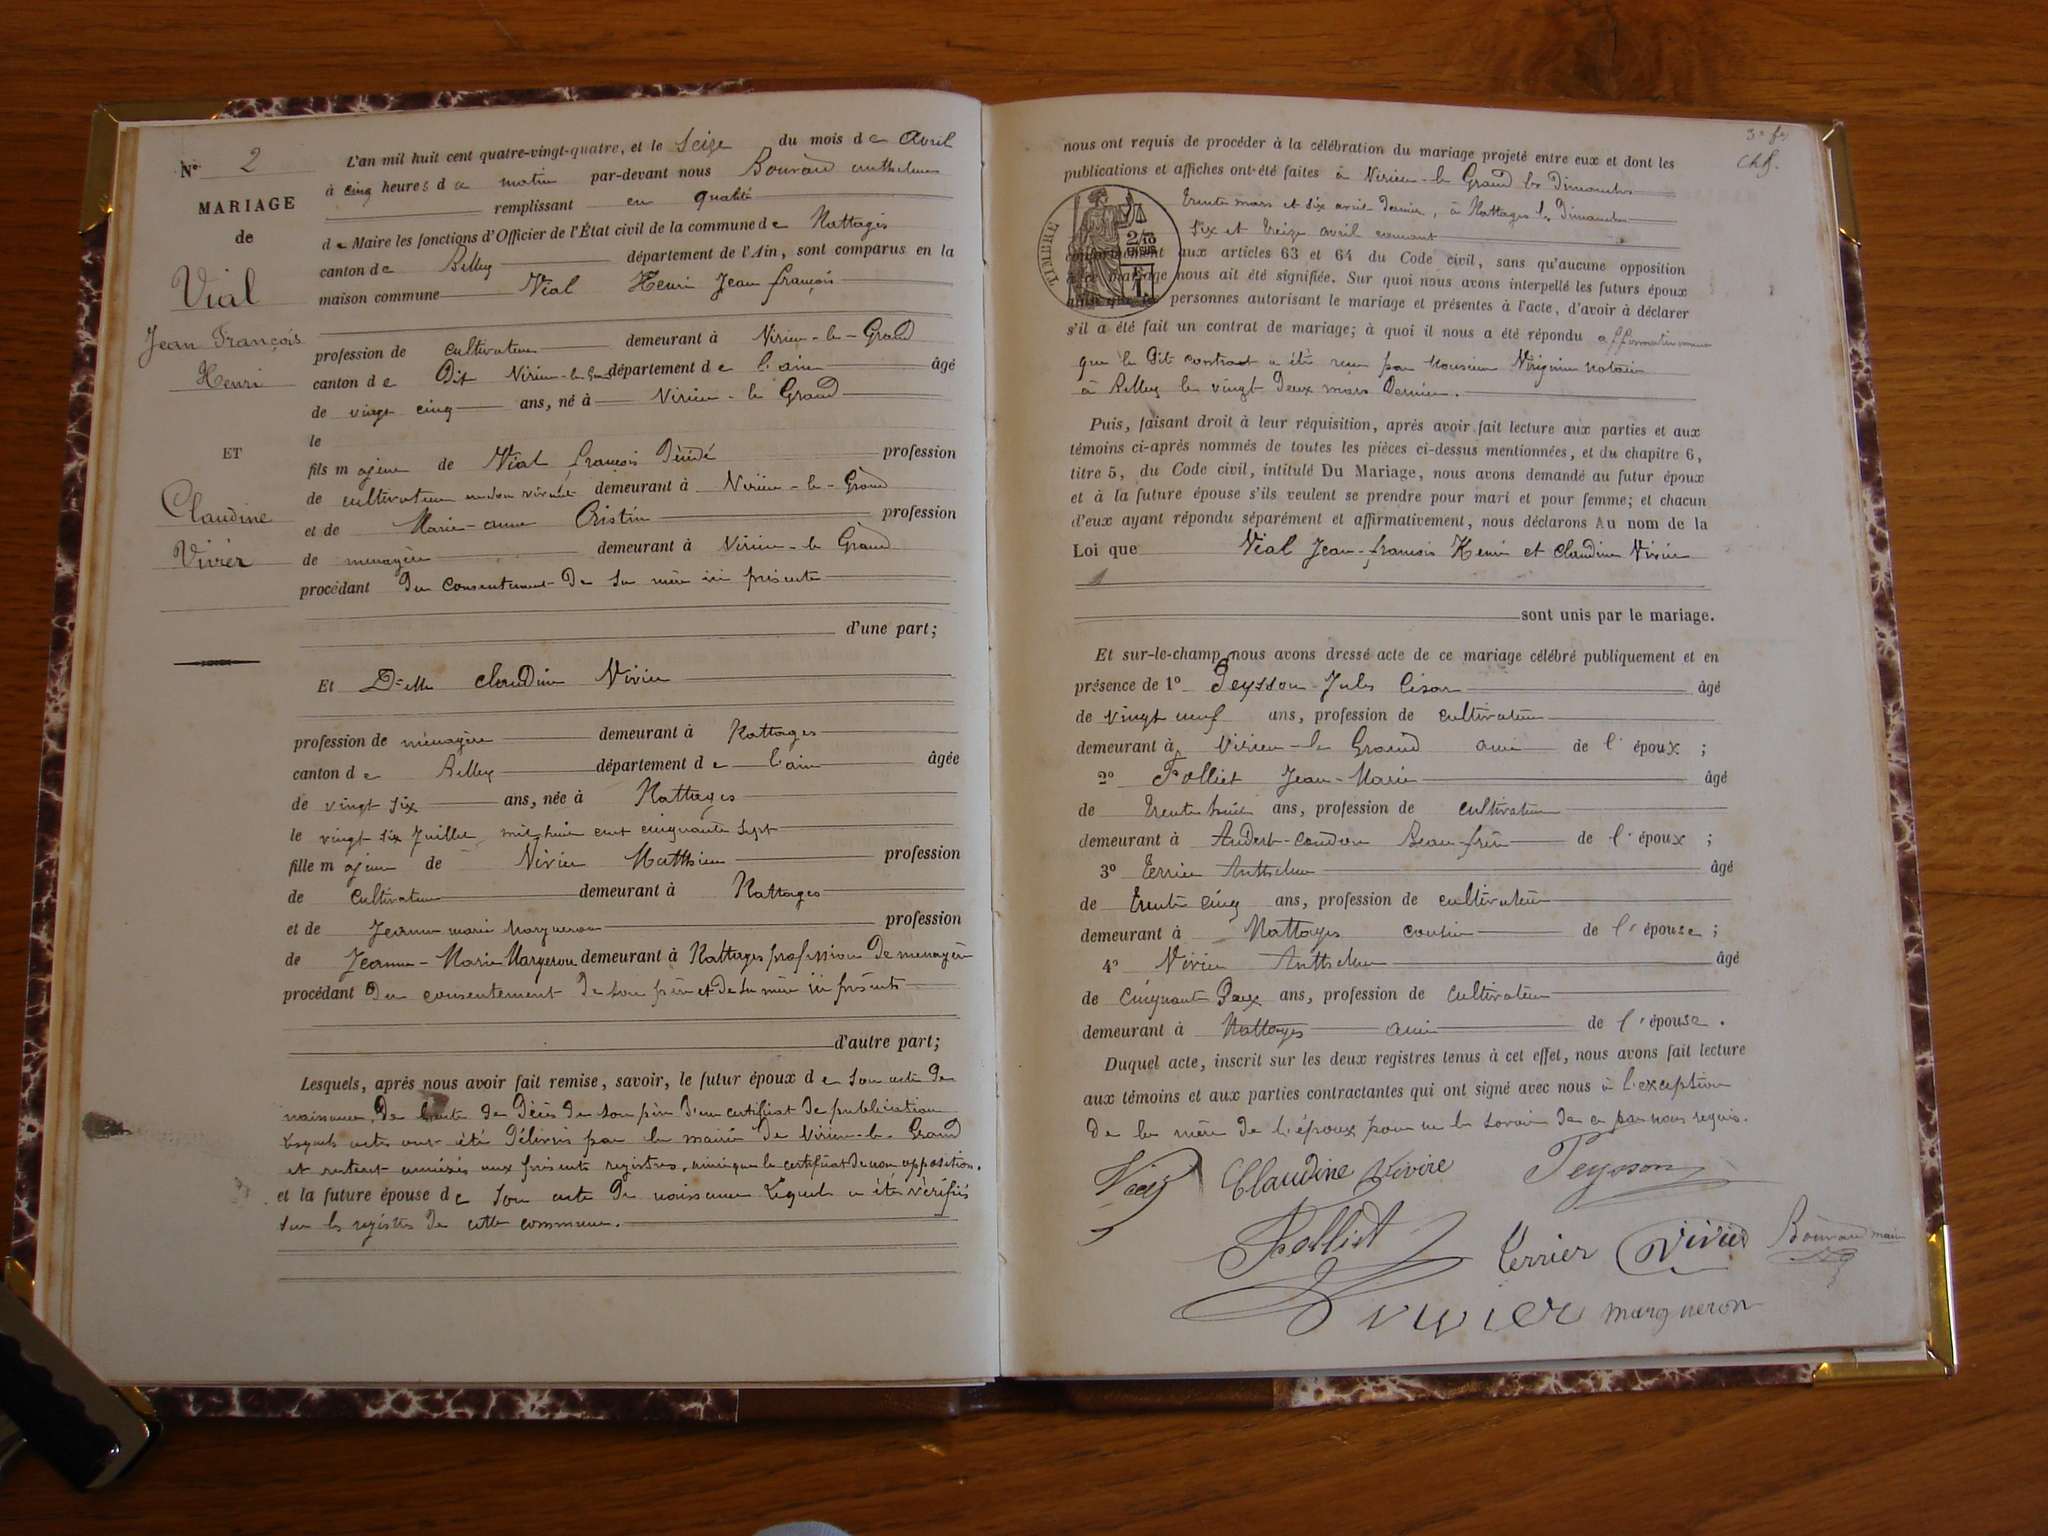 Nº 2
MARIAGE
de
Vial
Jean François
Henri
ET
Claudine
Vivier
L'an mil huit cent quatre-vingt-quatre, et le seize du mois de Avril
à cinq heures de matin par-devant nous Bouvard anthelme
remplissant en qualité
de Maire les fonctions d'Officier de l'État civil de la commune de Nattages
canton de Belley département de l'Ain, sont comparus en la
maison commune Vial Henri Jean françois
profession de cultivateur demeurant à Virieu-le-Grand
canton de Dit Virieu-le-Grand département de l'ain âgé
de vingt cinq ans, né à Virieu-le Grand
le
fils majeur de Vial françois Décédé profession
de cultivateur demeurant à Virieu-le-Grand
et de Marie-anne Cristin profession
de menagère demeurant à Virieu-le Grand
procédant Du consentement De sa mère ici présente
d'une part;
Et Delle Claudine Vivier
profession de ménagère demeurant à Nattages
canton de Belley département de l'ain âgée
de vingt six ans, née à Nattages
le vingt six Juillet mil huit cent cinquante sept
fille majeure de Vivier Matthieu profession
de cultivateur demeurant à Nattages
et de Jeanne marie Margueron profession
de Jeanne-Marie Margueron demeurant à Nattages profession De menagère
procédant Du consentement De son père et De sa mère ici présents
d'autre part;
Lesquels, après nous avoir fait remise, savoir, le futur époux de son acte De
naissance, De l'acte de Décès De son père D'un certificat De publication
Lesquels actes ont été Délivrés par la mairie De Virieu-le-Grand
et restent annéxés aux présents registres, ainsi que le certificat De non opposition.
et la future épouse de son acte De naissance Lequel a été vérifié
sur les registres De cette commune.
3e fs
Chf.
nous ont requis de procéder à la célébration du mariage projeté entre eux et dont les
publications et affiches ont été faites à Virieu-le Grand les Dimanches
trente mars et six avril dernier, à Nattages les Dimanches
six et treize avril courant
TIMBRE
2/10
EN SUS
1F
conformément aux articles 63 et 64 du Code civil, sans qu'aucune opposition
à ce mariage nous ait été signifiée. Sur quoi nous avons interpellé les futurs époux
ainsi que les personnes autorisant le mariage et présentes à l'acte, d'avoir à déclarer
s'il a été fait un contrat de mariage; à quoi il nous a été répondu affirmativement
que le Dit contract a été reçu par Monsieur notaire
à Belley le vingt Deux mars Dernier.
Puis, faisant droit à leur réquisition, après avoir fait lecture aux parties et aux
témoins ci-après nommés de toutes les pièces ci-dessus mentionnées, et du chapitre 6,
titre 5, du Code civil, intitulé Du Mariage, nous avons demandé au futur époux
et à la future épouse s'ils veulent se prendre pour mari et pour femme; et chacun
d'eux ayant répondu séparément et affirmativement, nous déclarons Au nom de la
Loi que Vial Jean-françois Henri et Claudine Vivier
sont unis par le mariage.
Et sur-le-champ nous avons dressé acte de ce mariage célébré publiquement et en
présence de 1º Peysson Jules César âgé
de vingt neuf ans, profession de cultivateur
demeurant à Virieu-le Grand ami de l'époux ;
2º Folliet Jean-Marie âgé
de trente huit ans, profession de cultivateur
demeurant à Andert-Condon Beau-frère de l'époux ;
3º Terrier Anthelme âgé
de trente cinq ans, profession de cultivateur
demeurant à Nattages cousin de l'épouse ;
4º Vivier Anthelme âgé
de cinquante Deux ans, profession de cultivateur
demeurant à Nattages ami de l'épouse .
Duquel acte, inscrit sur les deux registres tenus à cet effet, nous avons fait lecture
aux témoins et aux parties contractantes qui ont signé avec nous à l'exception
De la mère De l'époux pour ne le savoir De ce par nous requis.
Vial Claudine Vivier Peysson
Folliet Terrier Vivier Bouvard maire
Vivier margueron